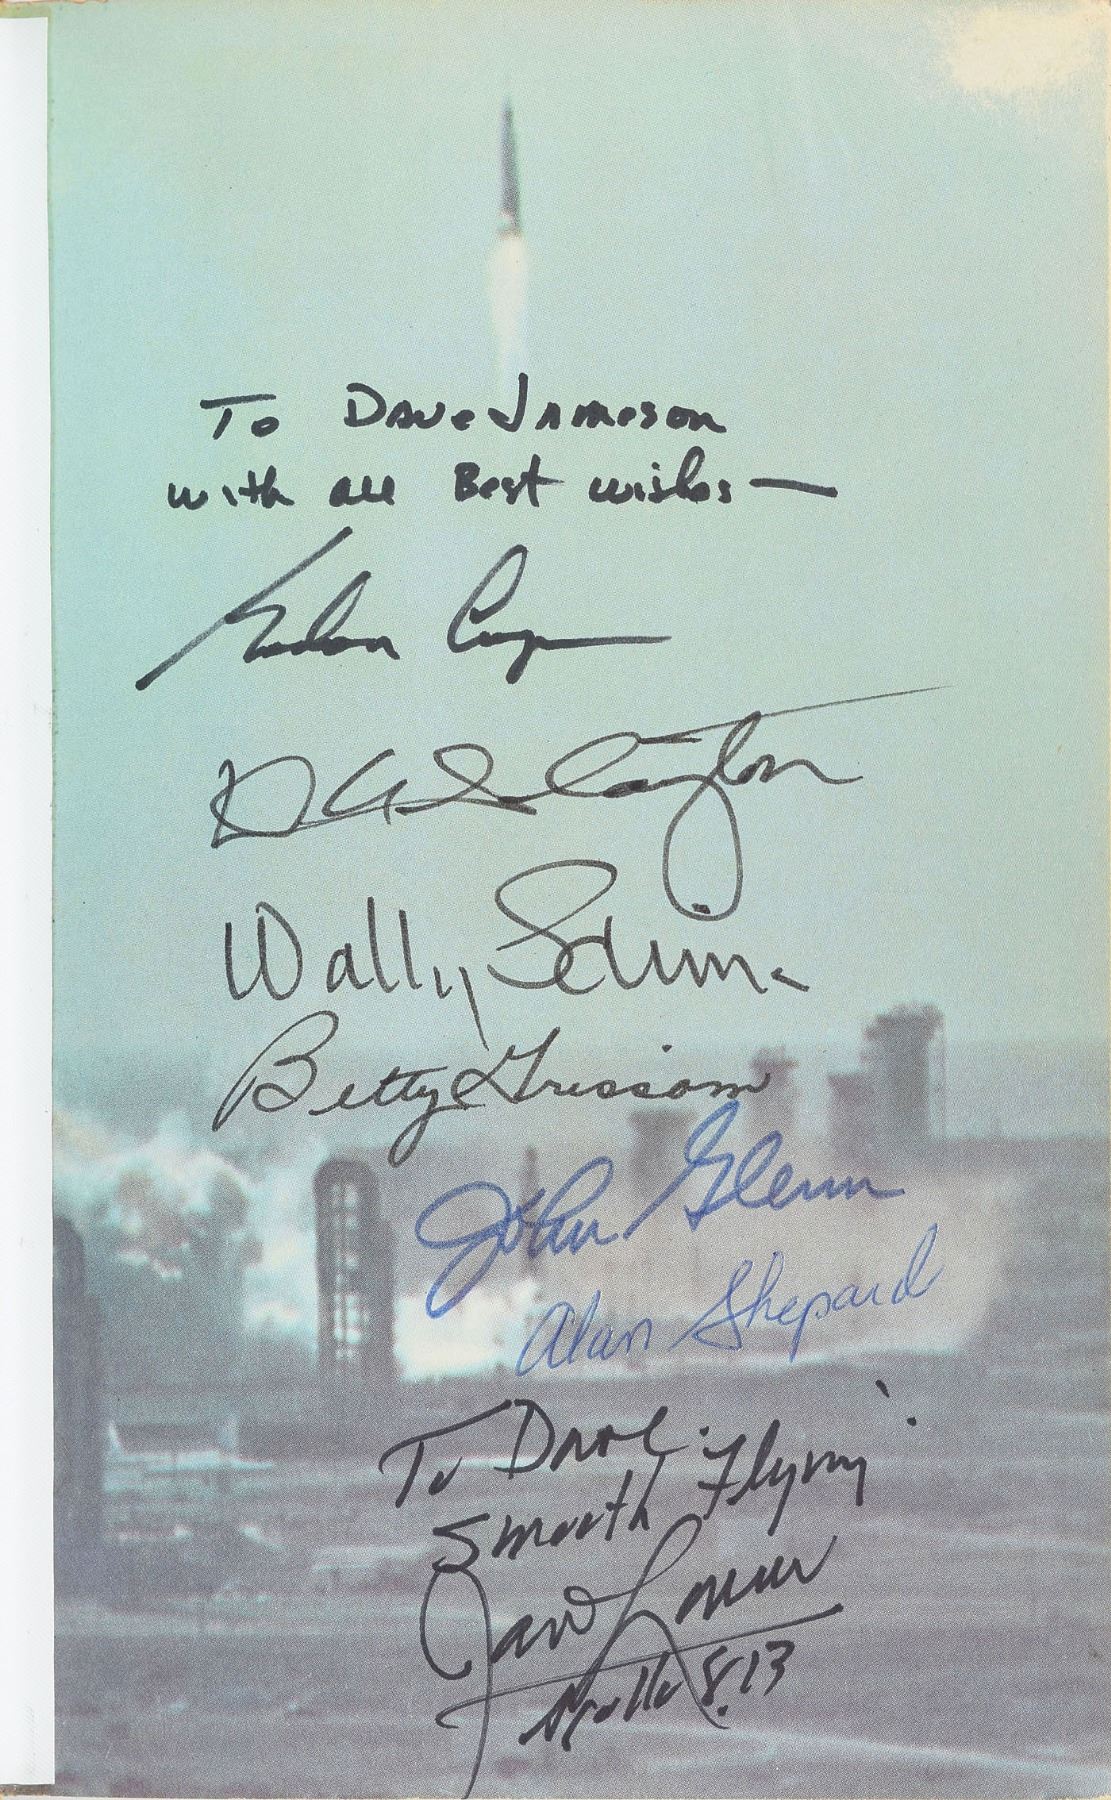 To Dave Jameson
with all Best wishes —
Gordon Cooper
D K Slayton
Wally Schirra
Betty Grissom
John Glenn
Alan Shepard
To Dave.
Smooth Flying!
James Lovell
Apollo 8, 13